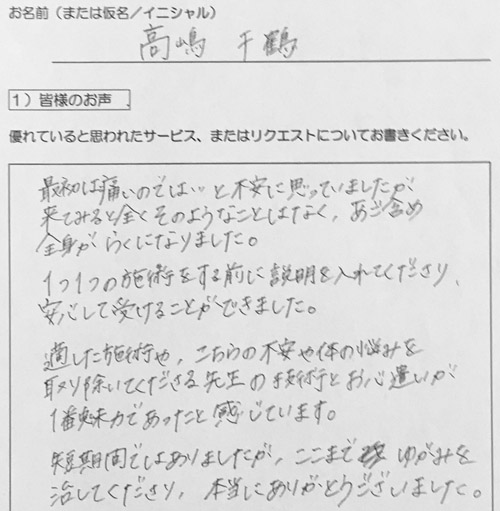 お名前（または仮名／イニシャル）
高嶋 千鶴
1）皆様のお声
優れていると思われたサービス、またはリクエストについてお書きください。
最初は痛いのでは…と不安に思っていましたが
来てみると全くそのようなことはなく、あご含め
全身がらくになりました。
1つ1つの施術をする前に説明を入れてくださり、
安心して受けることができました。
適した施術や、こちらの不安や体の悩みを
取り除いてくださる先生の技術とお心遣いが
1番魅力であったと感じています。
短期間ではありましたが、ここまで ゆがみを
治してくださり、本当にありがとうございました。